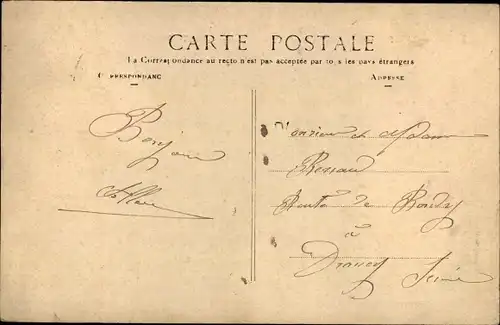 CARTE POSTALE
La Correspondance au recto n'est pas acceptée par tous les pays étrangers
CORRESPONDANCE
ADRESSE
Bonjour
Monsieur et Madame
Route de Bondy
à
Drancy Seine